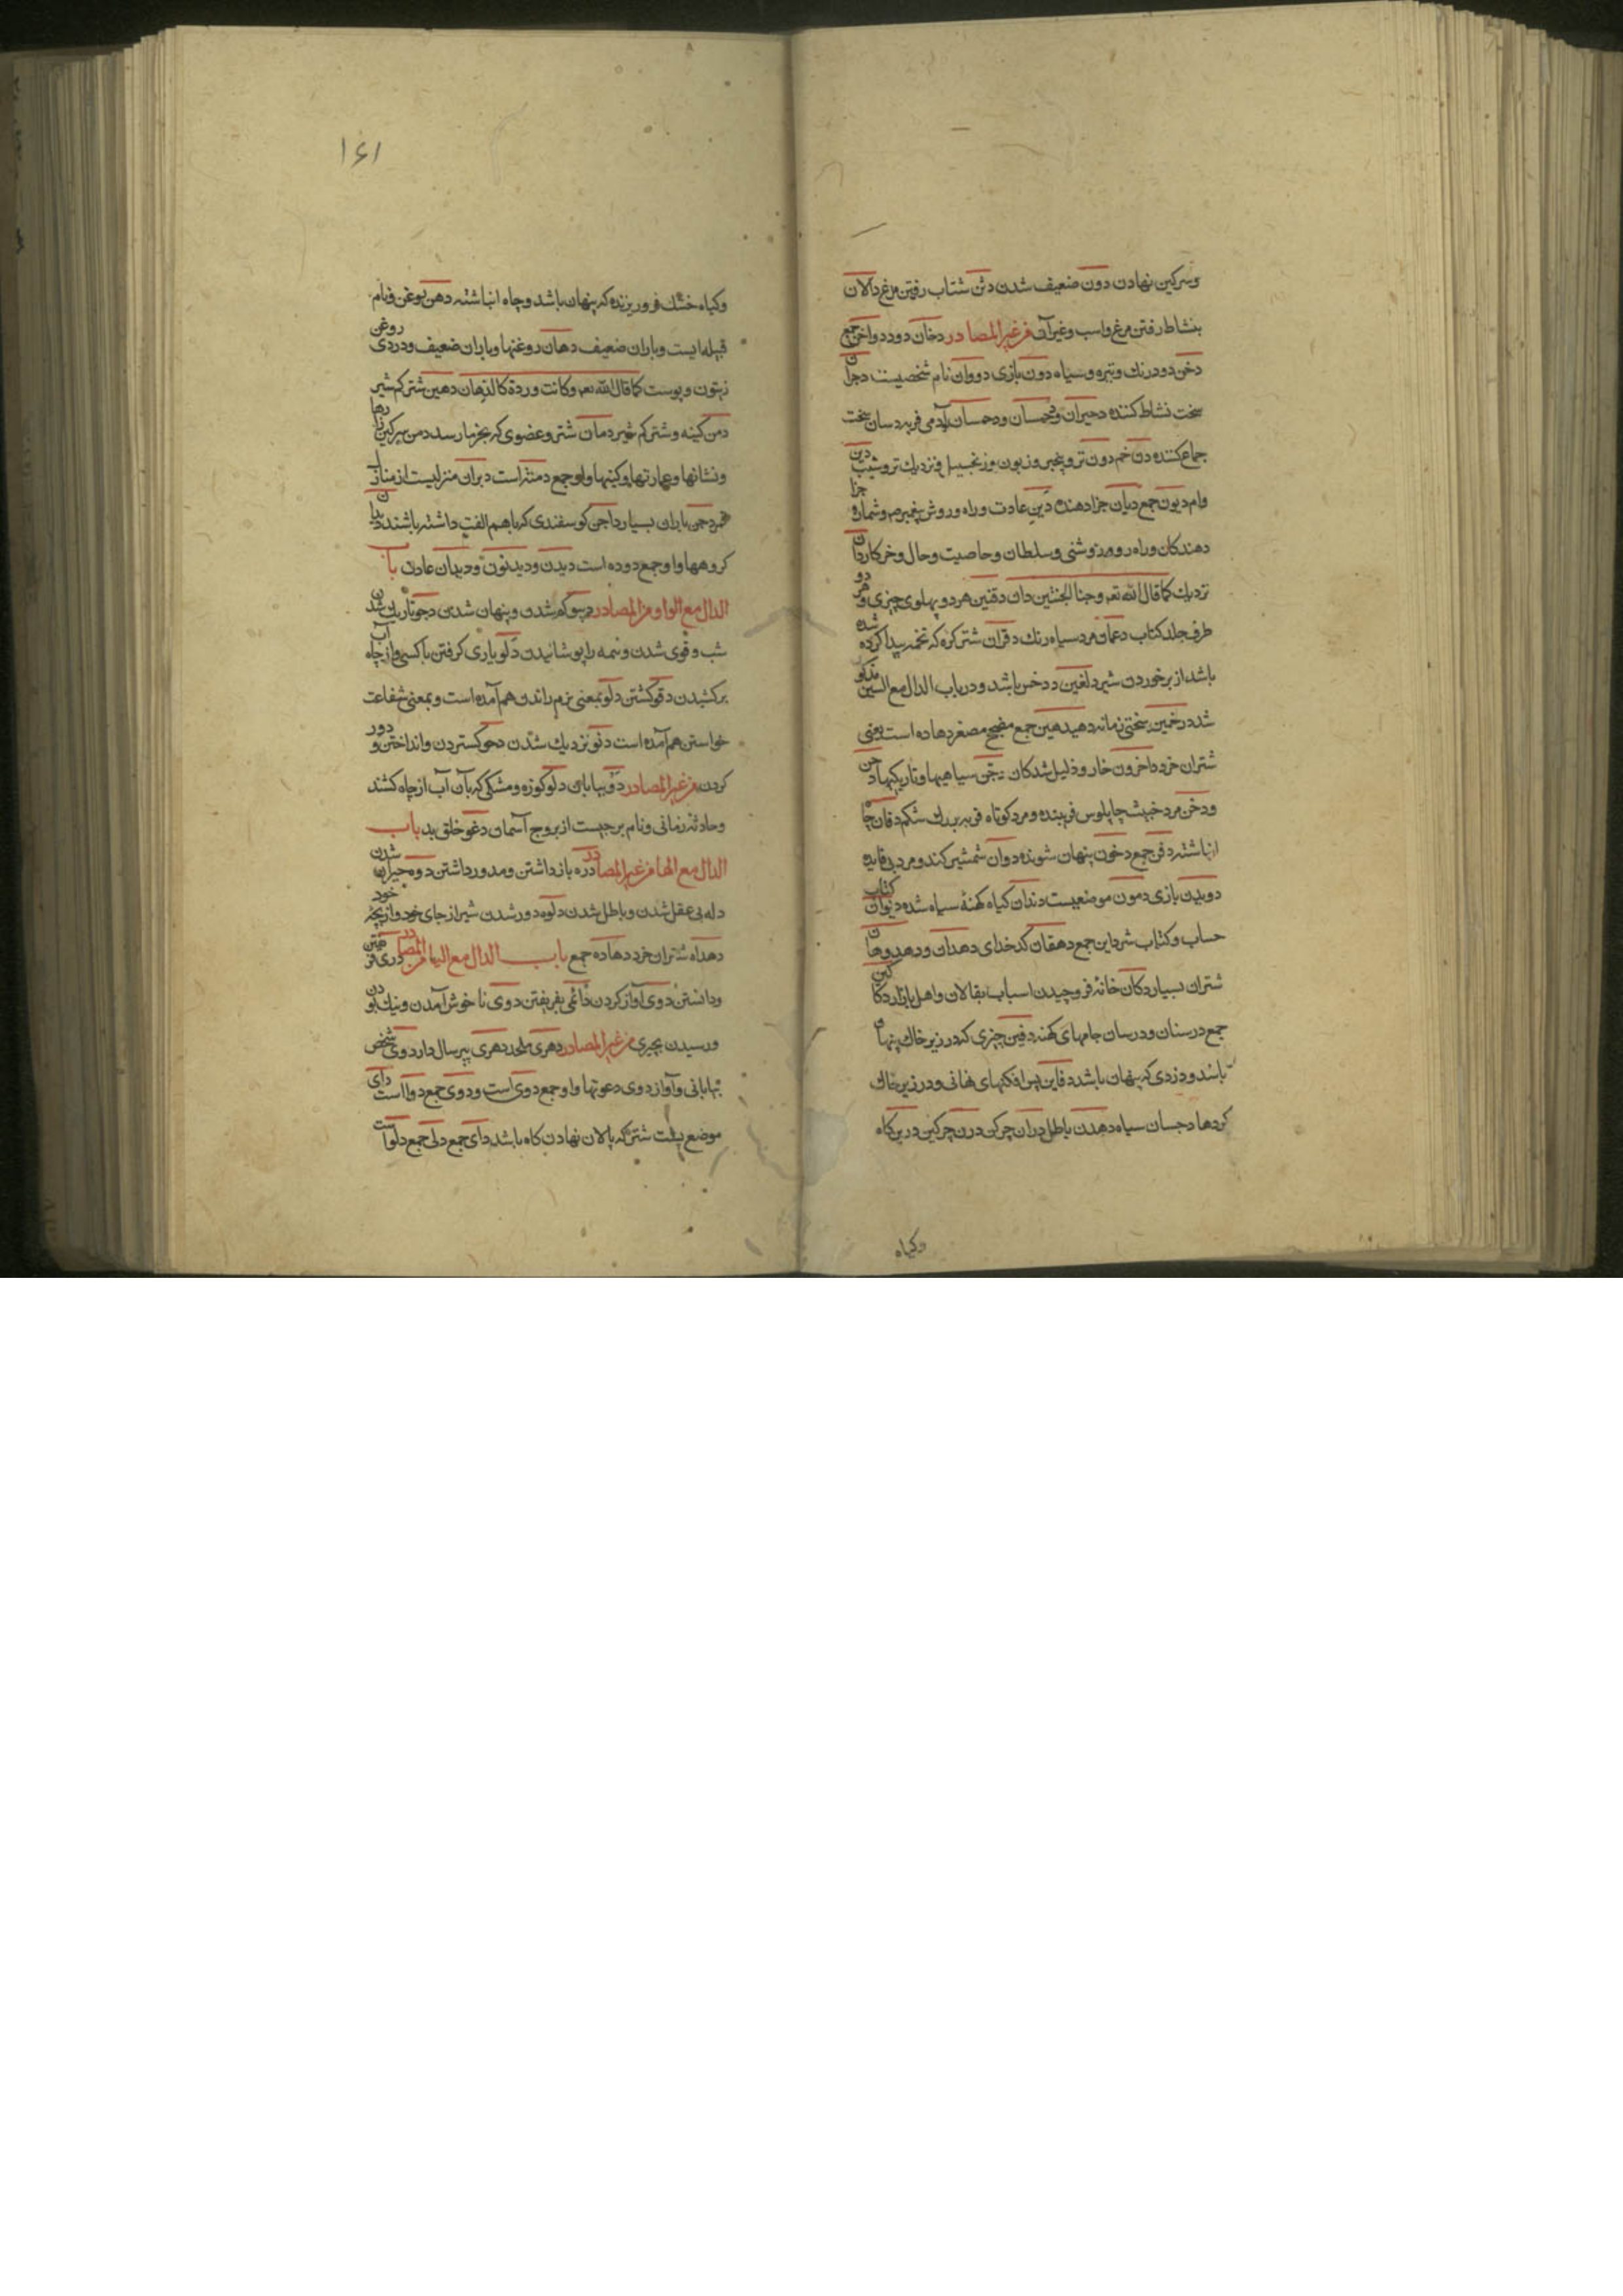 وسرکین نهادن دون ضعیف شدن دثن شتاب رفتن مرغ دالان
بنشاط رفتن مرغ واسب وغیرآن من غیر المصادر دخان دود دواخن جمع
دخن دود رنك وتیره وسیاه دون بازی دووان نام شخصیست دجران
سخت نشاط کننده دحیران ودحمسان ودحمسان آدمی فربه دسان سخت
جماع کننده دن خم دون تر وپنجبر وزبون وزنجبیل ونزدیك تر وشیب دین
وام دیون جمع دیان جزا دهنده دین عادت وراه وروش پیغمبر وشماره جزا
دهندکان وراه روم وزوشنی وسلطان وخاصیت وحال وخرکار دان
نزدیك کما قال الله تعه وجنا الجنتین دان دفتین هر دو پهلوی چیزی وهر دو
طرف جلد کتاب دعمان مرد سیاه رنك دقران شتر کره که تخمه پیدا کرده شده
باشد از برخوردن شیر دلغین ددخس باشد ودر باب الدال مع السین مذکور
شد درخمین سختی زمانه دهیدهین جمع مصحح مصغر دهاده است یعنی
شتران خرد داخرون خار وذلیل شدکان دجی سیاهیها وتاریکیها دخن
ودخن مرد خبیث چاپلوس فریبنده ومرد کوتاه فربه بزرك شکم دفان چاه
انباشته دفن جمع دخون پنهان شونده دوان شمشیر کند ومرد بی فایده
دویدن بازی دمون موضعیست دندان کیاه کهنۀ سیاه شده دیوان کتاب
حساب وکتاب شر داین جمع دهقان کدخدای دهدان ودهدوهان
شتران بسیار دکان خانۀ فروچیدن اسباب بقالان واهل بازار دکاکین
جمع درسنان ودرسان جامهای کهنه دفین چیزی که در زیر خاك پنهان
باشد ودزدی که پنهان باشد دفاین پس افکنهای نهانی ودر زیر خاك
کردها دجسان سیاه دهدن باطل دران چرکن درن چرکین درین کاه
وکیاه
۱۶۱
وکیاه خشك فرو ریزنده که پنهان باشد وچاه انباشته دهن روغن ونام
قبیله ایست وباران ضعیف دهان روغنها وباران ضعیف ودردی روغن
زیتون وپوست کما قال الله تعه وکانت وردة کالدهان دهین شتر کم شیر
دمن کینه وشتر کم شیر دمان شتر وعضوی که بجزما رسد دمن سرکین زارها
ونشانها وعمارتها وکینها واو جمع دمنة است دبران منزلیست از منازل
قمر دجن باران بسیار داجن کوسفندی که باهم الفت داشته باشند دیدن
کروهها واو جمع دوده است دیدن ودیدنون ودیدان عادت باب
الدال مع الواو من المصادر دسو کم شدن وپنهان شدن دجو تاریك شدن
شب وقوی شدن ونمه را پوشانیدن دلو یاری کرفتن باکسی واز چاه آب
برکشیدن دقو کشتن دلو بمعنی نرم راندن هم آمده است وبمعنی شفاعت
خواستن هم آمده است دنو نزدیك شدن دحو کستردن وانداختن ودور
کردن من غیر المصادر دو بیابان دلو کوزه ومشکی که بآن آب از چاه کشند
وحادثۀ زمانی ونام برجیست از بروج آسمان دغو خلق بد باب
الدال مع الها من غیر المصادر دره باز داشتن ومدور داشتن دوه حیران شدن
دله بی عقل شدن وباطل شدن دلوه دور شدن شیر از جای خود واز بچۀ خود
دهداه شتران خرد دهاده جمع باب الدال مع الیا من المصادر دری فریفتن
ودانستن دوی آواز کردن دائمی بفریفتن دوی نا خوش آمدن ونیك بودن
ورسیدن بچیزی من غیر المصادر دهری ملحد دهری پیر سال دار دوی شخص
بیابانی وآواز دوی دعوتها واو جمع دوی است ودوی جمع دوا است دای
موضع پشت شتر که پالان نهادن کاه باشد دای جمع دلی جمع دلوا است